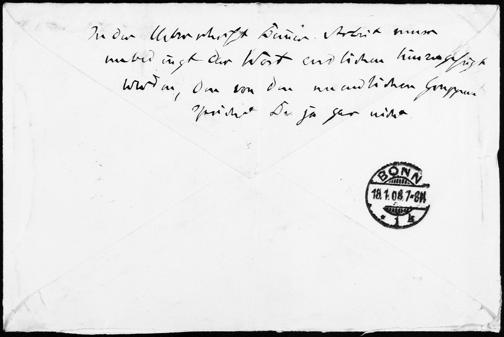 In der Überschrift Deiner Arbeit muss
unbedingt das Wort endlichen hinzugefügt
werden, denn von den unendlichen Gruppen
sprichst Du ja gar nicht
BONN
18.1.08.7-8N
* 1 k